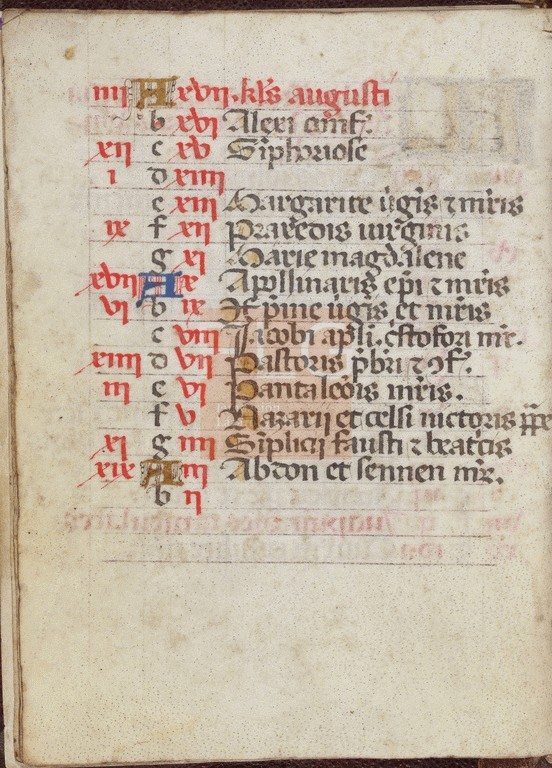 iiij A xvij. kl's augusti
b xvj Alexi conf.
xij c xv Sinphoriose
i d xiiij
e xiij Margarite u'gis ⁊ mr̃is
ix f xij Praxedis uirginis
g xj Marie magdalene
xvij A x Apollinaris ep̃i ⁊ mr̃is
vj b ix xp̃ine u'gis et mr̃is
c viij Jacobi ap̃li. c̃stofori mr̃.
xiiij d vij Pastoris p̃bri ⁊ ꝯf.
iij e vj Pantaleõis mr̃is.
f v Nazarij et celsi uictoris pp̃e
xj g iiij Sĩplicij fausti ⁊ beat'cis
xix A iij Abdon et sennen mr̃.
b ij